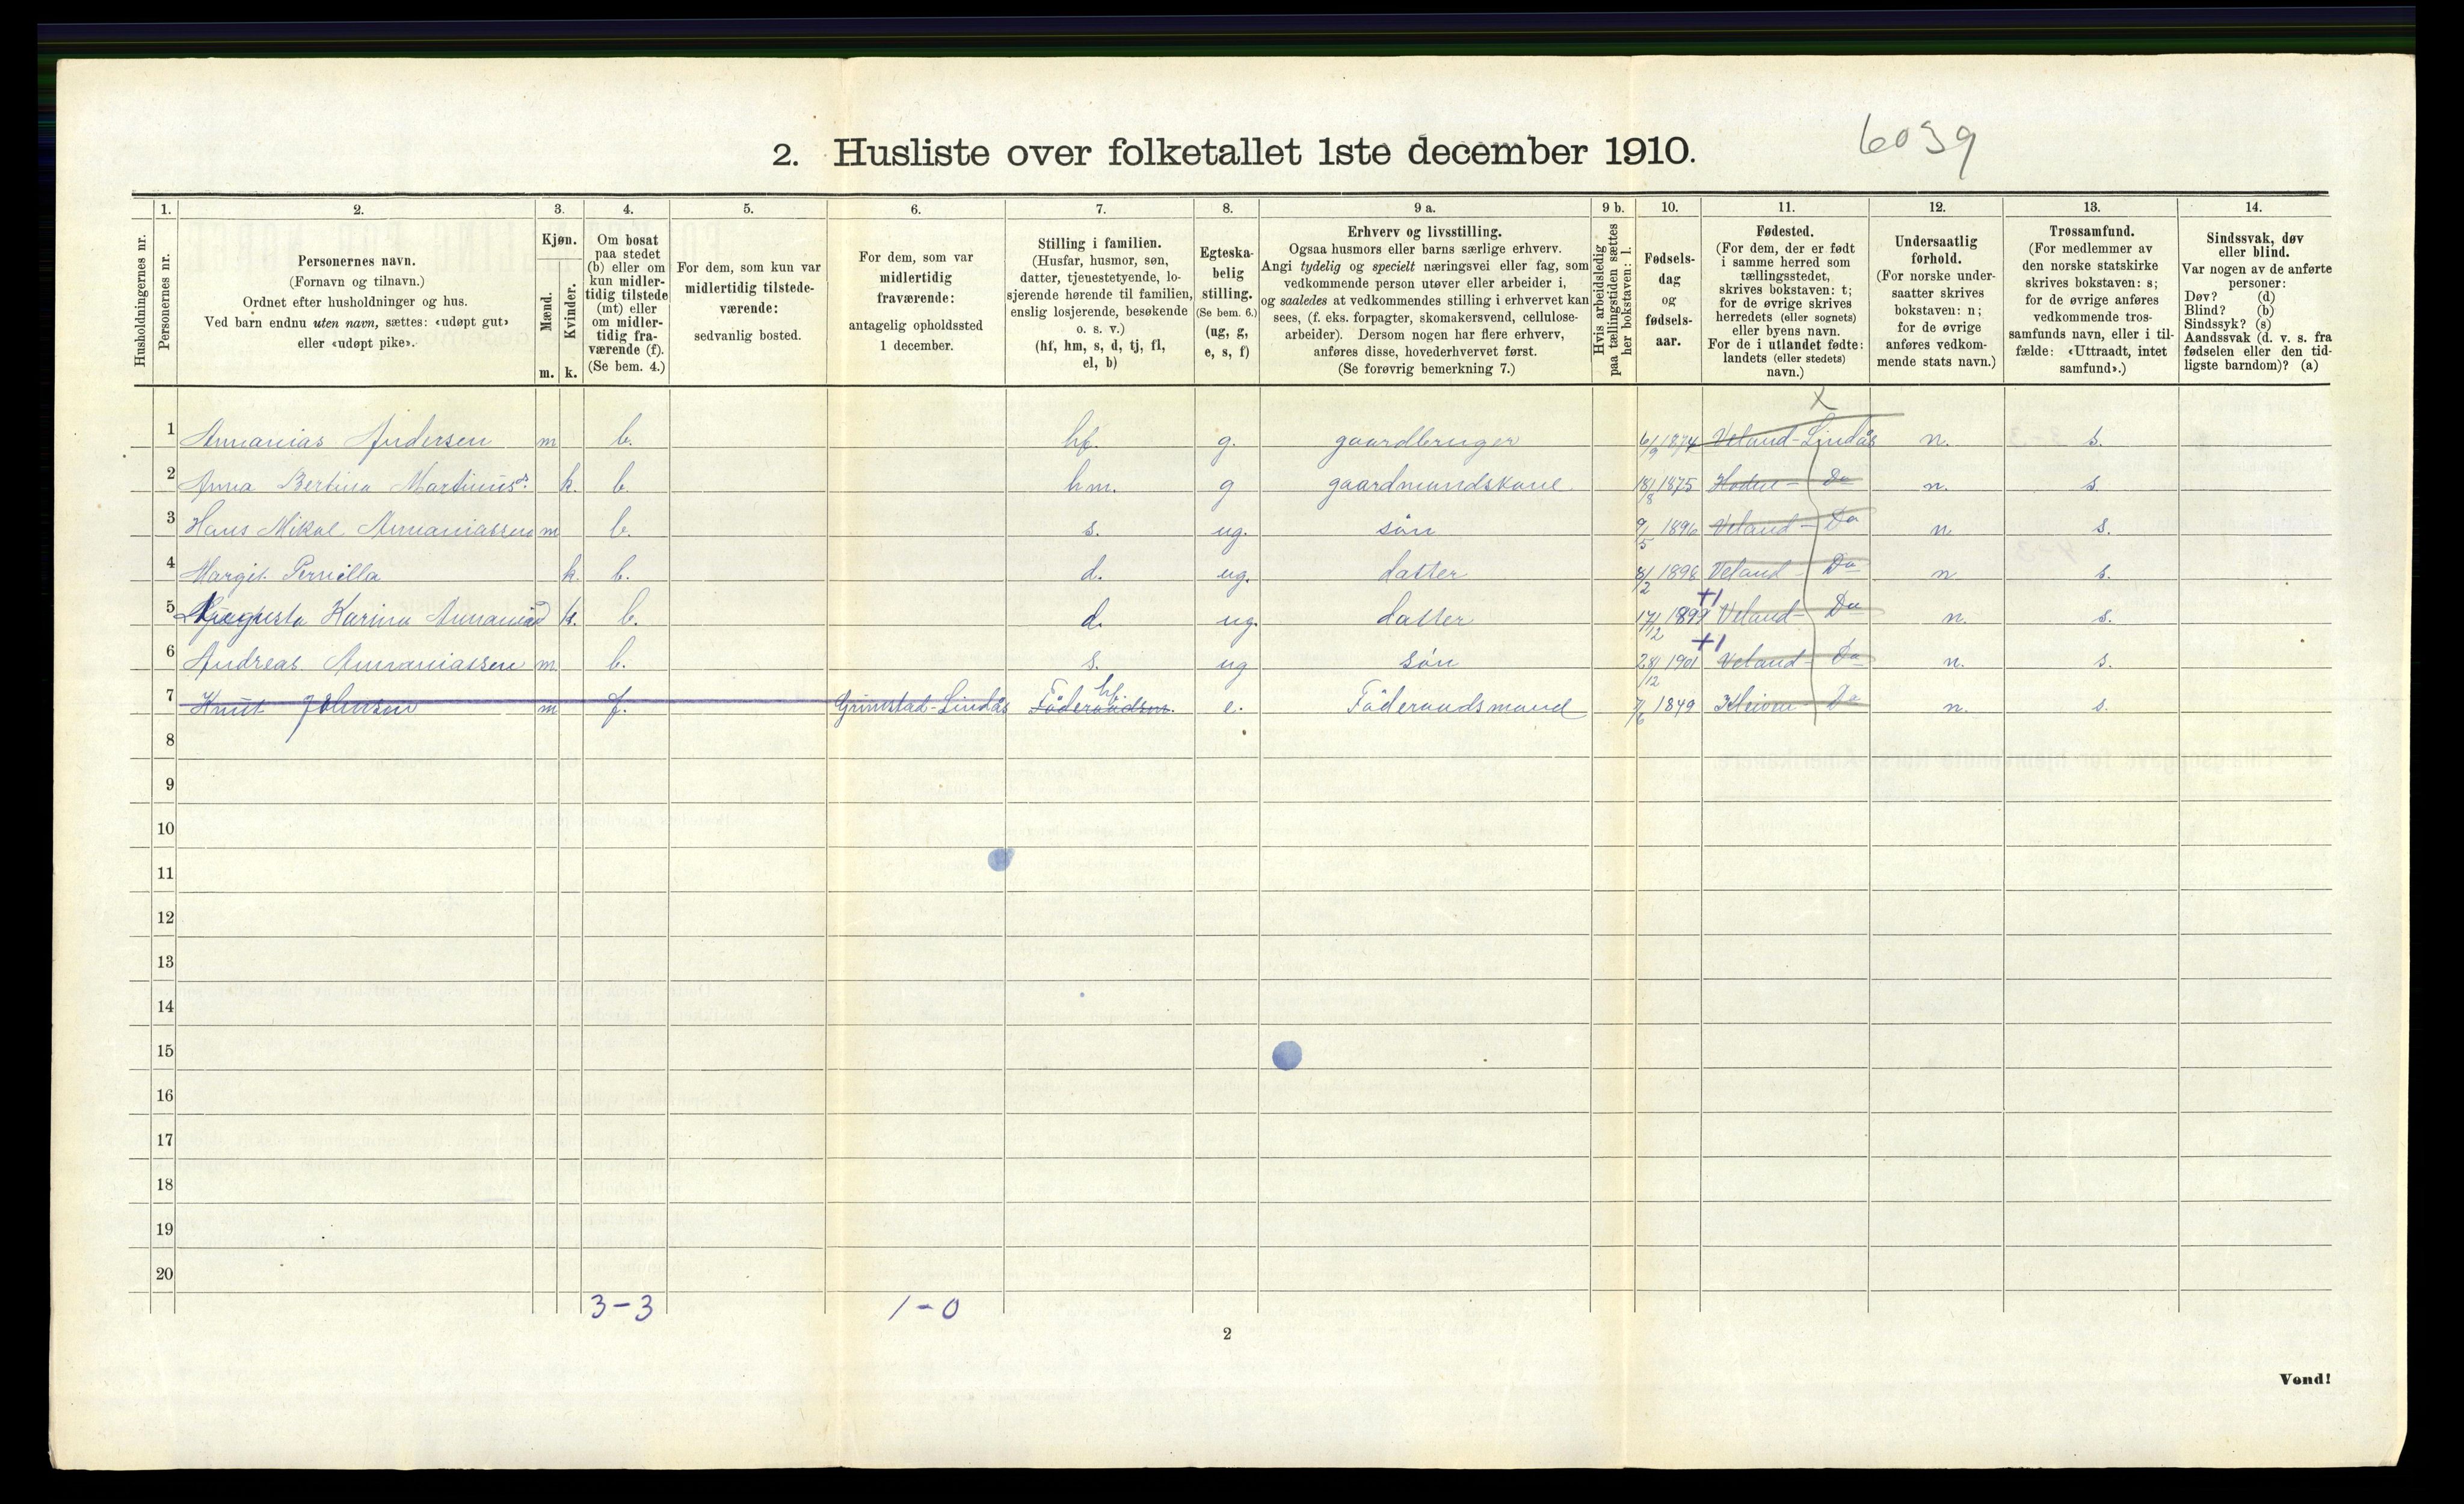 2. Husliste over folketallet 1ste december 1910.
6039
1. 2. 3. 4. 5. 6. 7. 8. 9 a. 9 b. 10. 11. 12. 13. 14.
Husholdningernes nr.
Personernes nr.
Personernes navn.
(Fornavn og tilnavn.)
Ordnet efter husholdninger og hus.
Ved barn endnu uten navn, sættes: «udøpt gut»
eller «udøpt pike».
Kjøn.
Mænd.
Kvinder.
m. k.
Om bosat
paa stedet
(b) eller om
kun midler-
tidig tilstede
(mt) eller
om midler-
tidig fra-
værende (f).
(Se bem. 4.)
For dem, som kun var
midlertidig tilstede-
værende:
sedvanlig bosted.
For dem, som var
midlertidig
fraværende:
antagelig opholdssted
1 december.
Stilling i familien.
(Husfar, husmor, søn,
datter, tjenestetyende, lo-
sjerende hørende til familien,
enslig losjerende, besøkende
o. s. v.)
(hf, hm, s, d, tj, fl,
el, b)
Egteska-
belig
stilling.
(Se bem. 6.)
(ug, g,
e, s, f)
Erhverv og livsstilling.
Ogsaa husmors eller barns særlige erhverv.
Angi tydelig og specielt næringsvei eller fag, som
vedkommende person utøver eller arbeider i,
og saaledes at vedkommendes stilling i erhvervet kan
sees, (f. eks. forpagter, skomakersvend, cellulose-
arbeider). Dersom nogen har flere erhverv,
anføres disse, hovederhvervet først.
(Se forøvrig bemerkning 7.)
Hvis arbeidsledig
paa tællingstiden sættes
her bokstaven: l.
Fødsels-
dag
og
fødsels-
aar.
Fødested.
(For dem, der er født
i samme herred som
tællingsstedet,
skrives bokstaven: t;
for de øvrige skrives
herredets (eller sognets)
eller byens navn.
For de i utlandet fødte:
landets (eller stedets)
navn.)
Undersaatlig
forhold.
(For norske under-
saatter skrives
bokstaven: n;
for de øvrige
anføres vedkom-
mende stats navn.)
Trossamfund.
(For medlemmer av
den norske statskirke
skrives bokstaven: s;
for de øvrige anføres
vedkommende tros-
samfunds navn, eller i til-
fælde: «Uttraadt, intet
samfund».)
Sindssvak, døv
eller blind.
Var nogen av de anførte
personer:
Døv? (d)
Blind? (b)
Sindssyk? (s)
Aandssvak (d. v. s. fra
fødselen eller den tid-
ligste barndom)? (a)
X
1 Annanias Andersen m b. hf. g. gaardbruger 6/9 1874 Veland-Lindås n. s.
2 Anna Bertina Martinusd. k. b. hm. g gaardmandskone 18/8 1875 Do n. s.
3 Hans Mikal Annaniassen m b. s. ug. søn 9/5 1896 Veland - Do n s.
4 Margit Pernilla k. b. d. ug. datter 8/2 1898 Veland - Do n s.
5 Augusta Karina k. b. d. ug. datter 17/12 1899 +1 Veland - Do n. s.
6 Andreas Annaniassen m. b. s. ug søn 28/12 1901 +1 Veland - Do n. s.
7 Knut Johnsen m f. Grimstad-Lindås hf e. Føderaadsmand 7/6 1849 Do n. s.
8
9
10
11
12
13
14
15
16
17
18
19
20
3-3 1-0
2
Vend!